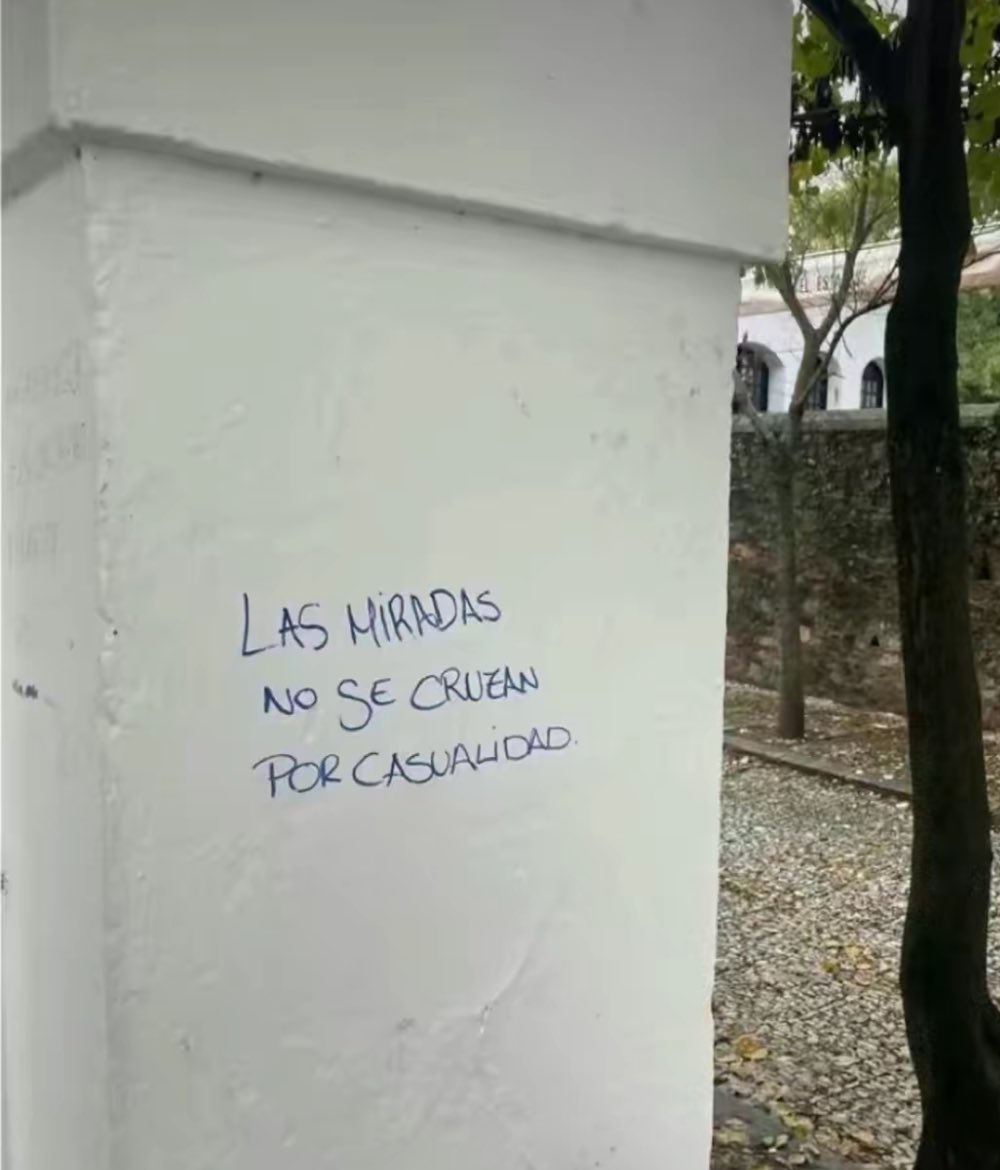 LAS MiRADAS
NO SE CRUZAN
POR CASUALiDAD.